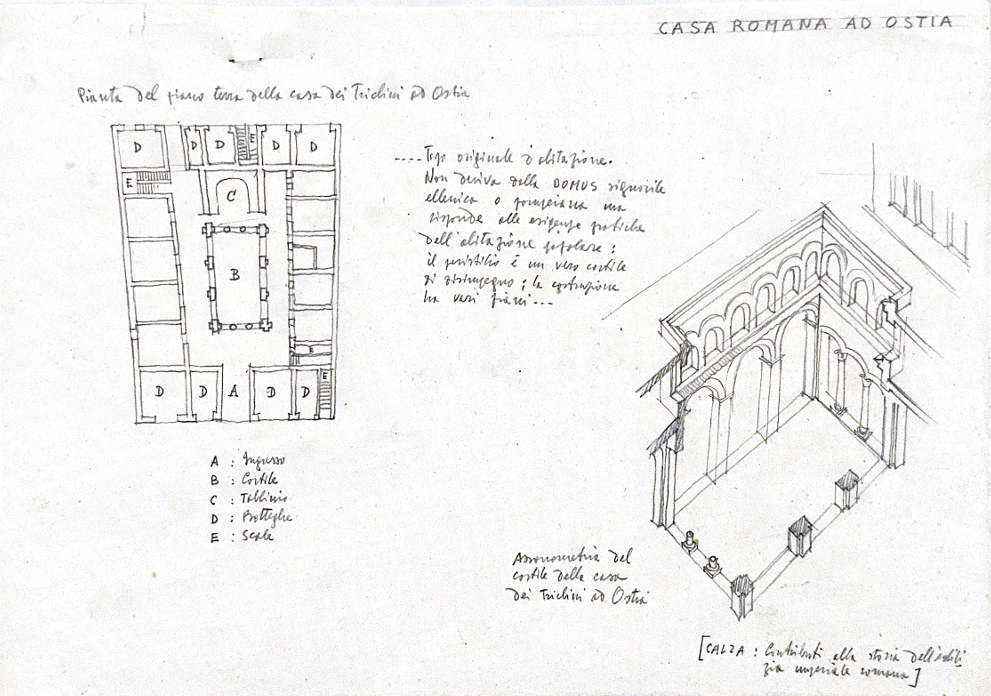 CASA ROMANA AD OSTIA
Pianta del piano terra della casa dei Triclini ad Ostia
D D D E D D
E
C
B
E
D D A D D E
.... Tipo originale d'abitazione.
Non deriva dalla DOMUS signorile
ellenica o pompeiana ma
risponde alle esigenze pratiche
dell'abitazione popolare :
il peristilio è un vero cortile
di disimpegno ; la costruzione
ha vari piani ...
A : Ingresso
B : Cortile
C : Tablinio
D : Botteghe
E : Scale
Assonometria del
cortile della casa
dei Triclini ad Ostia
[CALZA : Contributi alla storia dell'edili
zia imperiale romana]